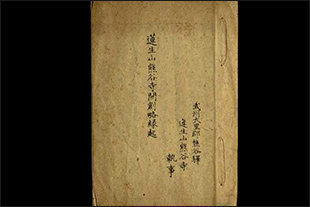 蓮生山熊谷寺開創略縁起
武州大里郡熊谷驛
蓮生山熊谷寺
執事